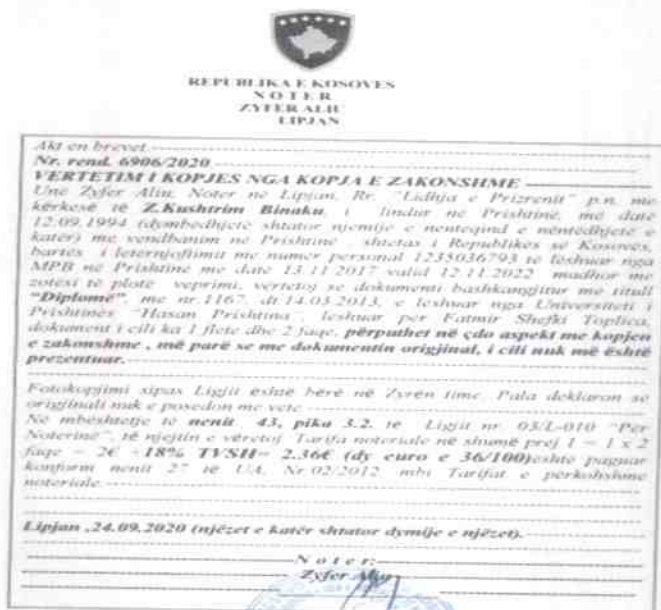 REPUBLIKA E KOSOVES
NOTER
ZYFER ALIU
LIPJAN
Akt en brevet.
Nr. rend. 6906/2020
VERTETIM I KOPJES NGA KOPJA E ZAKONSHME
Unë Zyfer Aliu, Noter në Lipjan, Rr. "Lidhja e Prizrenit" p.n. me
kërkesë të Z.Kushtrim Binaku, i lindur në Prishtinë, më datë
12.09.1994 (dymbëdhjetë shtator njëmijë e nentëqind e nëntëdhjetë e
katër) me vendbanim në Prishtinë shtetas i Republikës së Kosovës,
bartës i letërnjoftimit me numër personal 1235036793 të lëshuar nga
MPB në Prishtinë me datë 13.11.2017 valid 12.11.2022 madhor me
zotësi të plotë veprimi, vërtetoj se dokumenti bashkangjitur me titull
"Diplomë", me nr.1167, dt.14.03.2013, e lëshuar nga Universiteti i
Prishtinës "Hasan Prishtina", lëshuar për Fatmir Shefki Toplica,
dokument i cili ka 1 fletë dhe 2 faqe, përputhet në çdo aspekt me kopjen
e zakonshme , më parë se me dokumentin origjinal, i cili nuk më është
prezentuar.
Fotokopjimi sipas Ligjit është bërë në Zyrën time. Pala deklaron se
origjinali nuk e posedon me vete.
Në mbështetje të nenit 43, pika 3.2. të Ligjit nr. 03/L-010 "Për
Noterinë", të njejtin e vëretoj Tarifa noteriale në shumë prej 1 = 1 x 2
faqe = 2€ +18% TVSH= 2.36€ (dy euro e 36/100)është paguar
konform nenit 27 të UA, Nr.02/2012, mbi Tarifat e përkohshme
noteriale.
Lipjan ,24.09.2020 (njëzet e katër shtator dymijë e njëzet).
Noter:
Zyfer Aliu